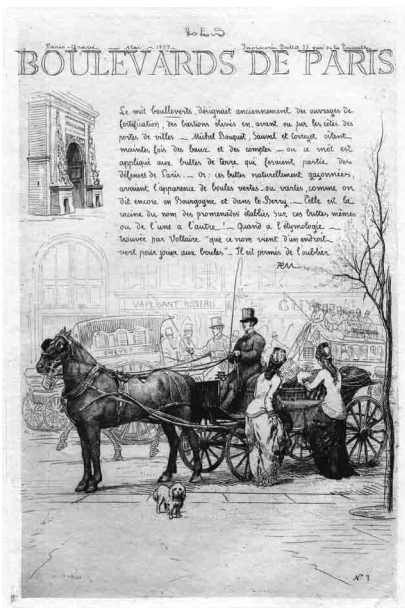 LES
Paris-Gravé — Mai — 1877. Imprimerie
BOULEVARDS DE PARIS
Le mot boulleverts, désignait anciennement des ouvrages de
fortification, des bastions élevés en avant ou sur les côtés des
portes de villes — Michel Bouquet, Sauval et Corrozet citent
maintes fois des baux et des comptes — où ce mot est
appliqué aux buttes de terre qui fesaient partie des
défenses de Paris. — Or: ces buttes naturellement gazonnées,
avaient l'apparence de boules vertes — ou vartes, comme on
dit encore en Bourgogne et dans le Berry — Celle est la
racine du nom des promenades établies sur ces buttes mêmes
ou de l'une à l'autre! — Quand à l'étymologie —
trouvée par Voltaire "que ce nom vient d'un endroit —
vert pour jouer aux boules" — Il est permis de l'oublier
VAPEREAU
N° 1